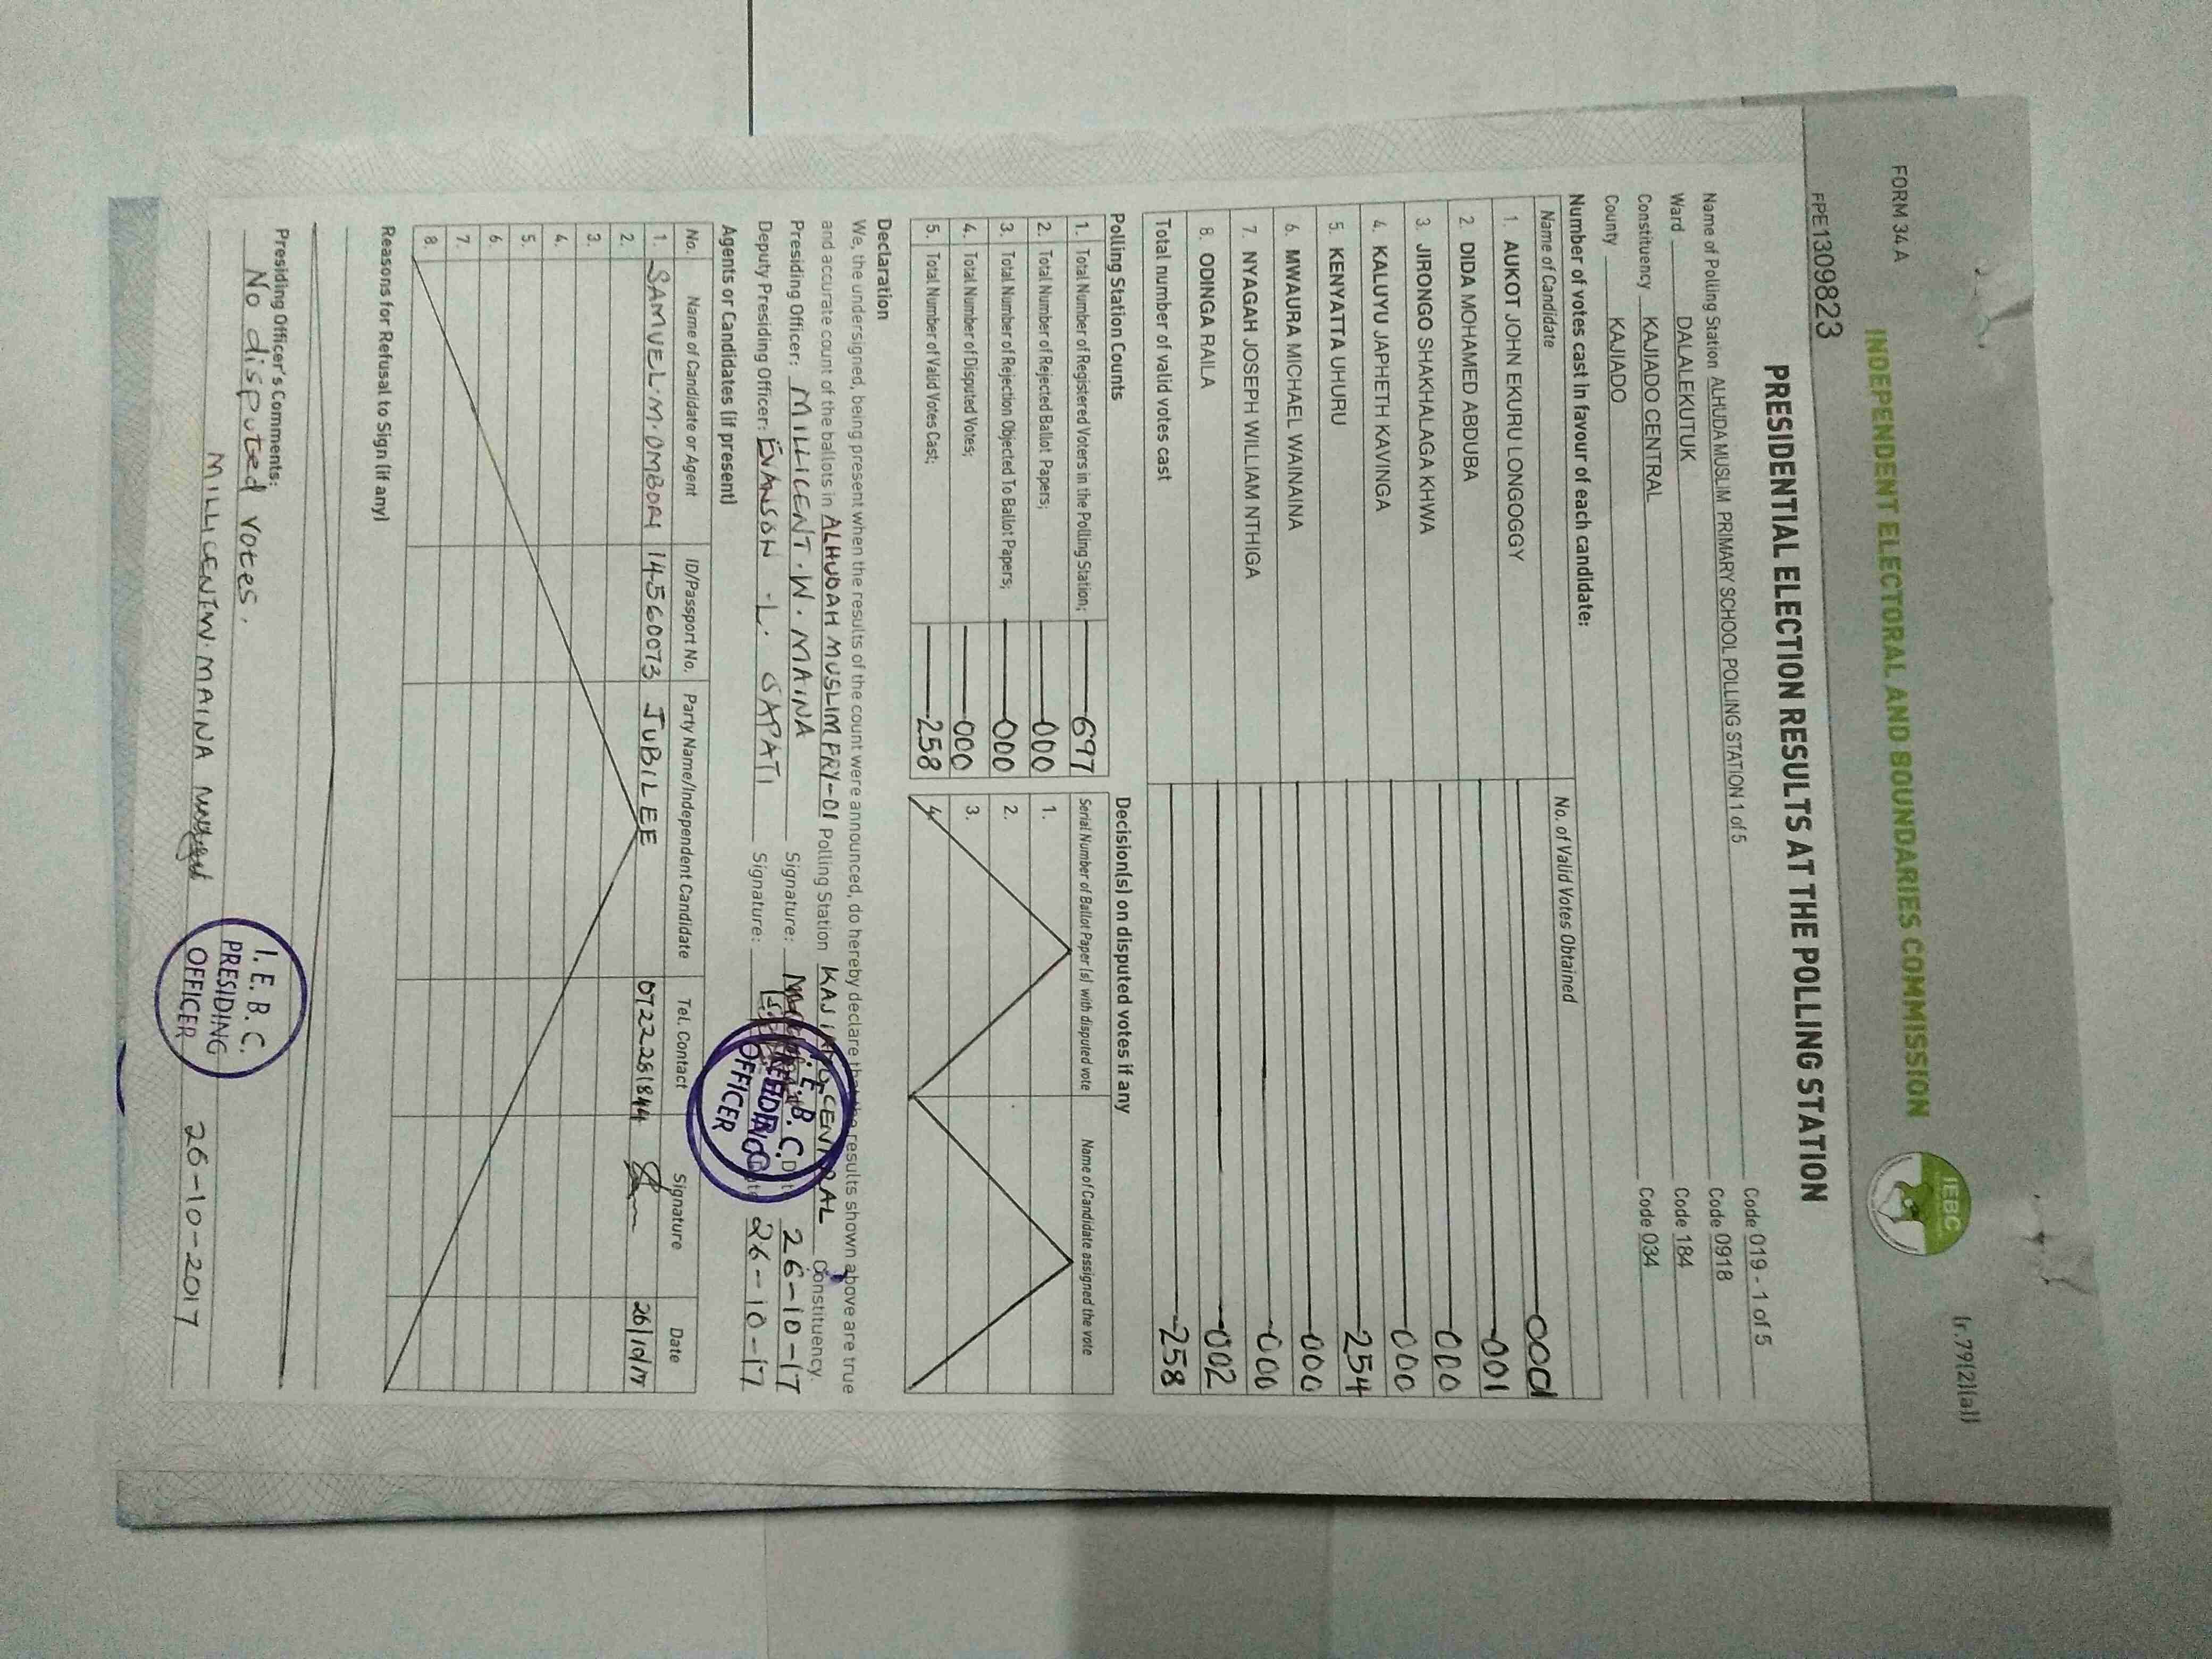 FORM 34 A
(r.79(2)(a))
INDEPENDENT ELECTORAL AND BOUNDARIES COMMISSION
IEBC
FPE1309823
PRESIDENTIAL ELECTION RESULTS AT THE POLLING STATION
Name of Polling Station ALHUDA MUSLIM PRIMARY SCHOOL POLLING STATION 1 of 5 Code 019 - 1 of 5
Ward DALALEKUTUK Code 0918
Constituency KAJIADO CENTRAL Code 184
County KAJIADO Code 034
Number of votes cast in favour of each candidate:
Name of Candidate No. of Valid Votes Obtained
1. AUKOT JOHN EKURU LONGOGGY 000
2. DIDA MOHAMED ABDUBA 001
3. JIRONGO SHAKHALAGA KHWA 000
4. KALUYU JAPHETH KAVINGA 000
5. KENYATTA UHURU 254
6. MWAURA MICHAEL WAINAINA 000
7. NYAGAH JOSEPH WILLIAM NTHIGA 000
8. ODINGA RAILA 002
Total number of valid votes cast 258
Polling Station Counts
1. Total Number of Registered Voters in the Polling Station; 697
2. Total Number of Rejected Ballot Papers; 000
3. Total Number of Rejection Objected To Ballot Papers; 000
4. Total Number of Disputed Votes; 000
5. Total Number of Valid Votes Cast; 258
Decision(s) on disputed votes if any
Serial Number of Ballot Paper (s) with disputed vote Name of Candidate assigned the vote
1.
2.
3.
4.
Declaration
We, the undersigned, being present when the results of the count were announced, do hereby declare that the results shown above are true
and accurate count of the ballots in ALHUDAH MUSLIM PRY-01 Polling Station KAJIADO CENTRAL Constituency.
Presiding Officer: MILLICENT.W.MAINA Signature: Date 26-10-17
Deputy Presiding Officer: EVANSON -L. SAPATI Signature: Date 26-10-17
I.E.B.C.
PRESIDING
OFFICER
Agents or Candidates (if present)
No. Name of Candidate or Agent ID/Passport No. Party Name/Independent Candidate Tel. Contact Signature Date
1. SAMUEL.M.OMBORI 14560073 JUBILEE 0722281844 26/10/17
2.
3.
4.
5.
6.
7.
8.
Reasons for Refusal to Sign (if any)
Presiding Officer's Comments:
No disputed votes.
MILLICENT.W.MAINA 26-10-2017
I.E.B.C.
PRESIDING
OFFICER